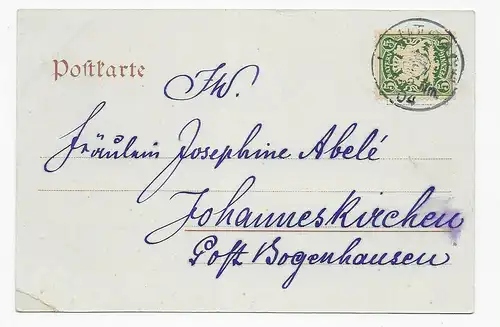 Postkarte
I. W.
Fräulein Josephine Abelé
Johanneskirchen
Post Bogenhausen
04